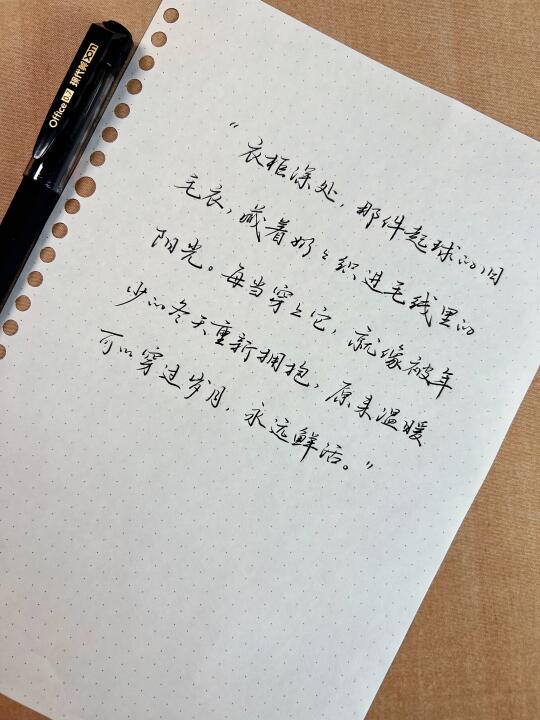 “衣柜深处，那件起球的旧
毛衣，藏着奶々织进毛线里的
阳光。每当穿上它，就像被年
少的冬天重新拥抱，原来温暖
可以穿过岁月，永远鲜活。”
Office 0.7 现代美